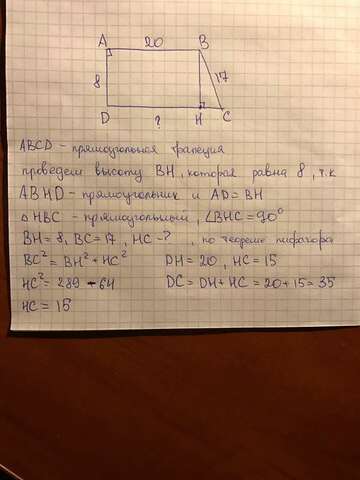 A 20 B
8 17
D ? H C
ABCD - прямоугольная трапеция
проведем высоту BH, которая равна 8, т.к
ABHD - прямоугольник и AD = BH
△ HBC - прямоугольный, ∠BHC = 90°
BH = 8, BC = 17, HC - ?, по теореме пифагора
BC² = BH² + HC² DH = 20, HC = 15
HC² = 289 - 64 DC = DH + HC = 20 + 15 = 35
HC = 15